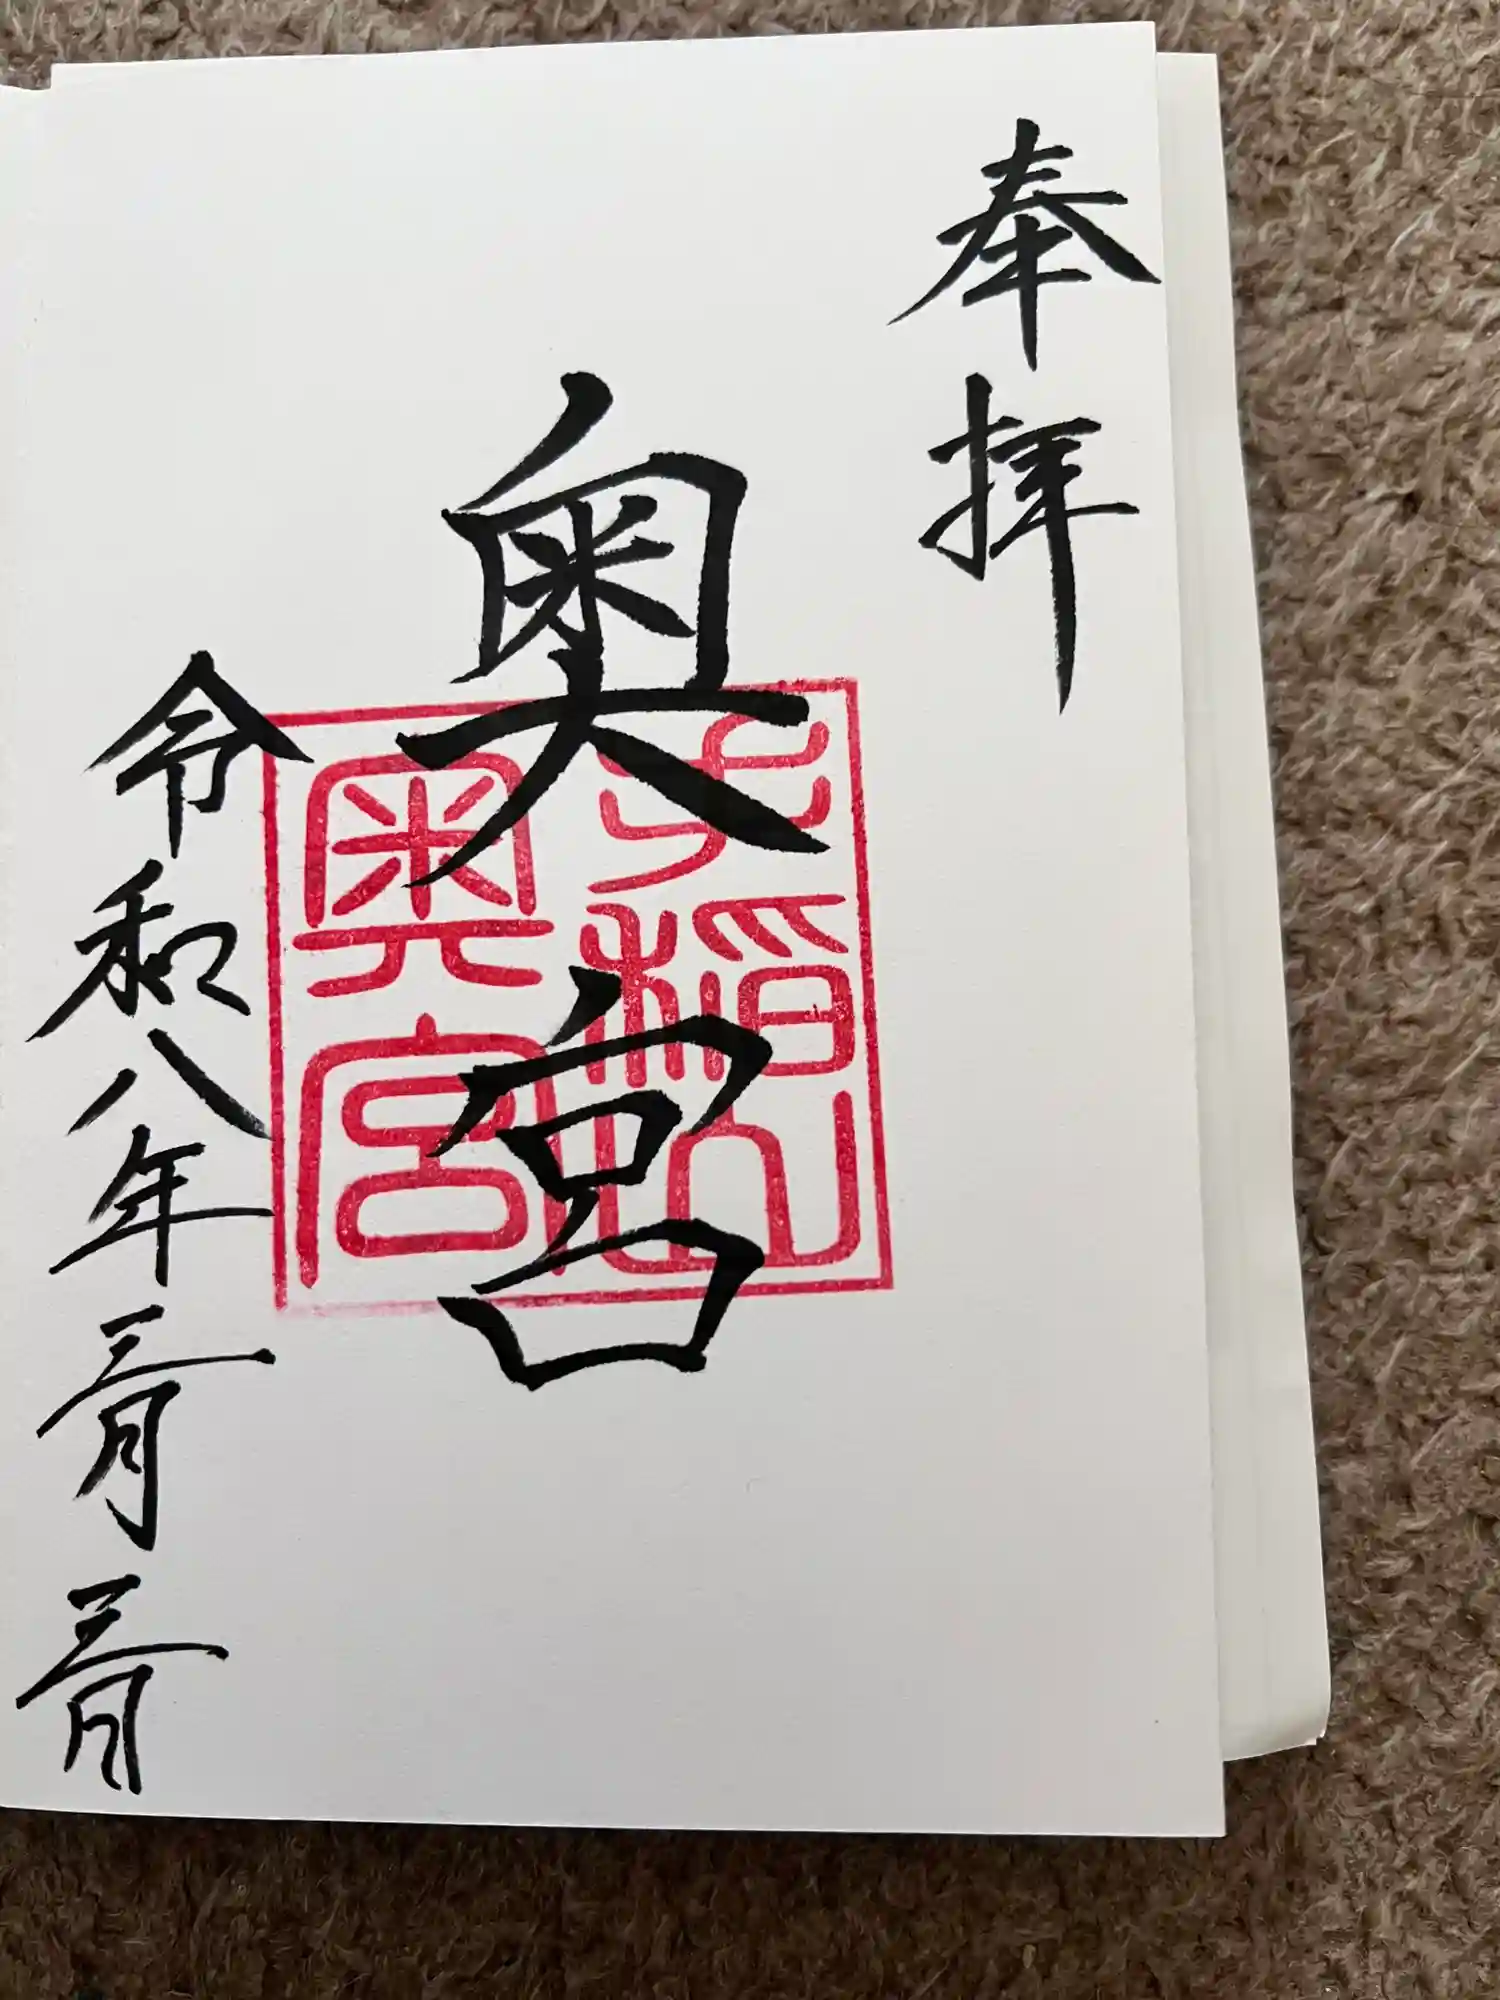 奉拝
奥宮
手稲山
奥宮
令和八年三月三日